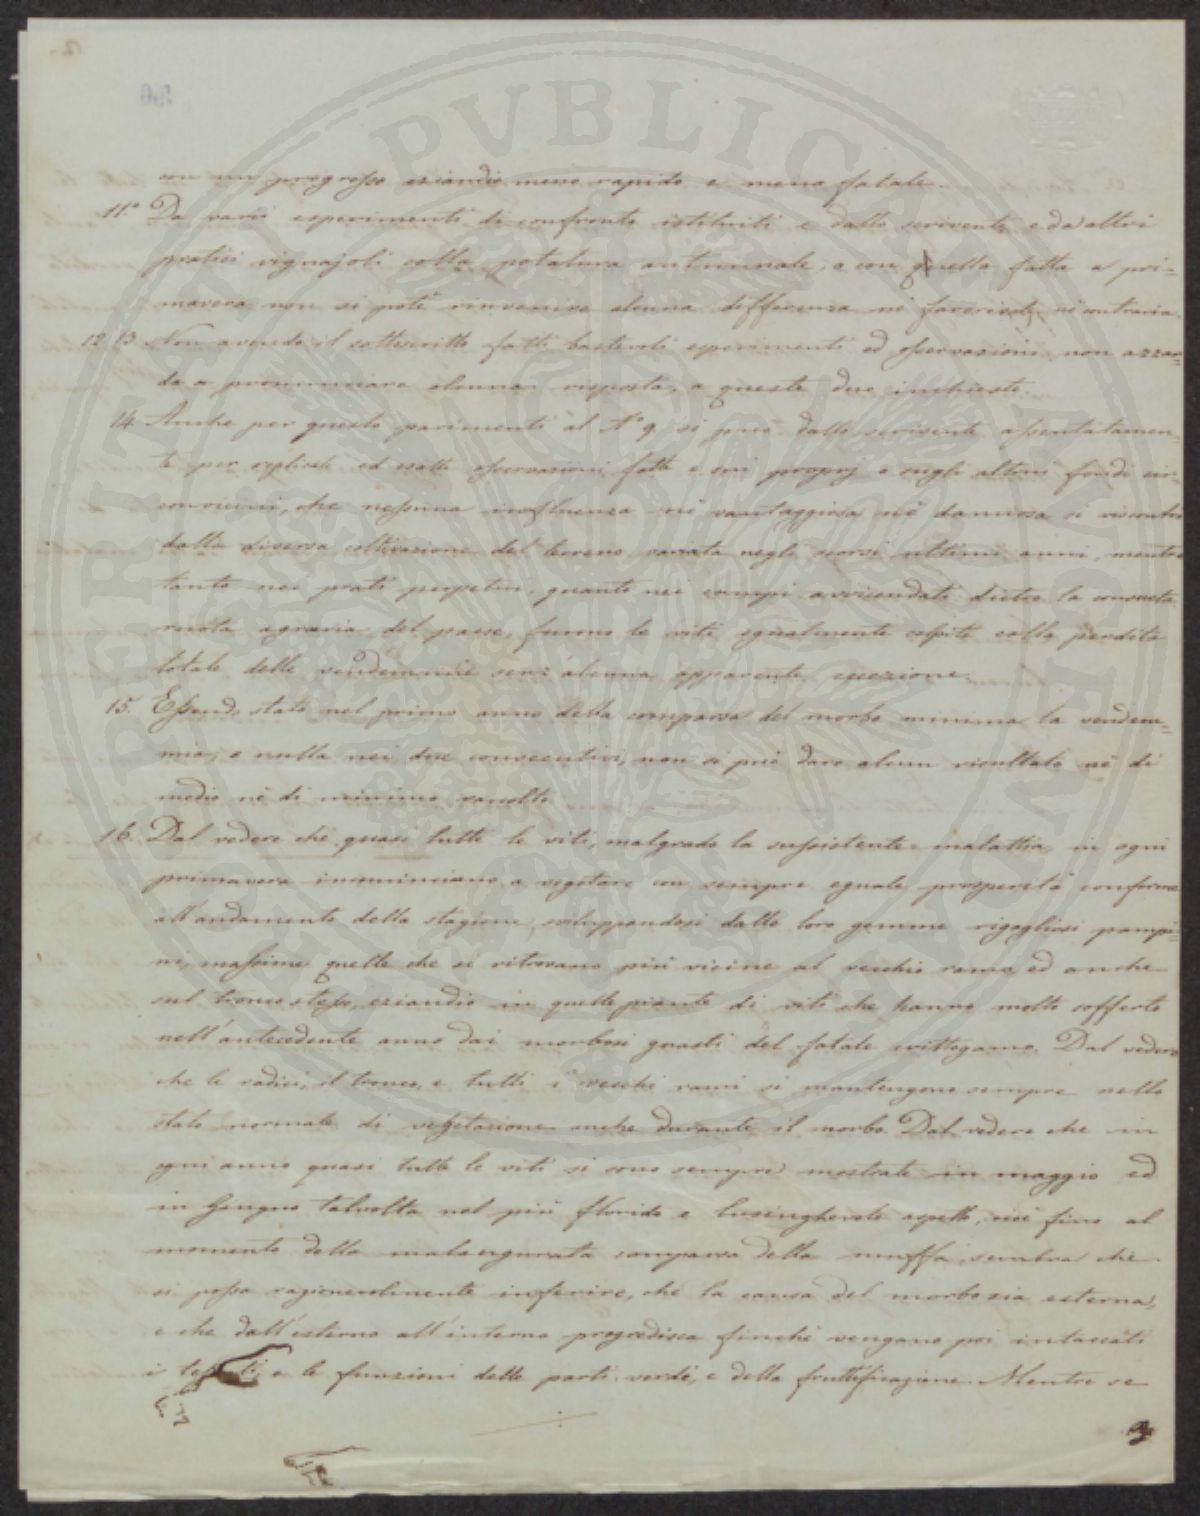 con un progresso eziandio meno rapido e meno fatale.
11° Da varii esperimenti di confronto istituiti e dallo scrivente e da altri
pratici vignajoli colla potatura autunnale, e con quella fatta a pri=
mavera non si potè rinvenire alcuna differenza nè favorevole, nè contraria.
12. 13. Non avendo il sottoscritto fatti bastevoli esperimenti ed osservazioni, non azzar=
da a pronunciare alcuna risposta a queste due inchieste.
14. Anche per questo parimenti al N° 9. si può dallo scrivente assentatamen=
te per replicate ed esatte osservazioni fatte e sui proprj e sugli altrui fondi cir=
convicini, che nessuna influenza nè vantaggiosa nè dannosa si riscontrò
dalla diversa coltivazione del terreno variata negli scorsi ultimi anni, mentre
tanto nei prati perpetui, quanto nei campi avvicendati dietro la consueta
ruota agraria del paese, furono le viti egualmente colpite colla perdita
totale delle vendemmie senz'alcuna apparente eccezione.
15. Essendo stata nel primo anno della comparsa del morbo minima la vendem=
mia, e nulla nei due consecutivi, non si può dare alcun risultato nè di
medio nè di minimo raccolto.
16. Dal vedere che quasi tutte le viti, malgrado la sussistente malattia, in ogni
primavera incominciano a vegetare con sempre eguale prosperità conforme
all'andamento della stagione, sviluppandosi dalle loro gemme rigogliosi pampi=
ni, massime quelle che si ritrovano più vicine al vecchio ramo, ed anche
sul tronco stesso, eziandio in quelle piante di viti che hanno molto sofferto
nell'antecedente anno dai morbosi guasti del fatale crittogamo. Dal vedere
che le radici, il tronco, e tutti i vecchi rami si mantengono sempre nello
stato normale di vegetazione anche durante il morbo. Dal vedere che in
ogni anno quasi tutte le viti si sono sempre mostrate in maggio ed
in Giugno talvolta nel più florido e lusinghevole aspetto, cioè fino al
momento della malaugurata comparsa della muffa, sembra che
si possa ragionevolmente inferire, che la causa del morbo sia esterna,
e che dall'esterno all'interno progredisca finchè vengano poi intaccati
i tessuti, e le funzioni delle parti verdi, e della fruttificazione. Mentre se